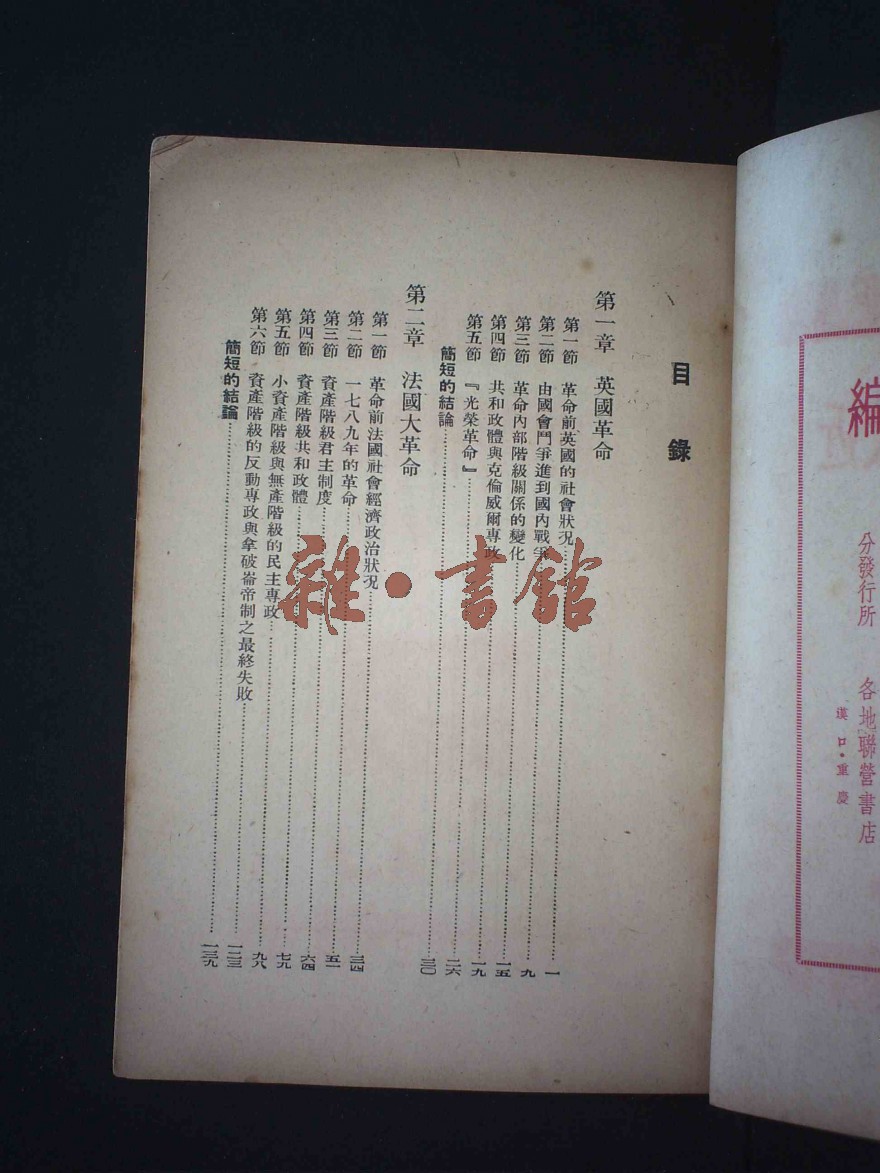 編
分發行所 各地聯營書店
漢口·重慶
目錄
第一章 英國革命
第一節 革命前英國的社會狀况 一
第二節 由國會鬥爭進到國內戰爭 九
第三節 革命內部階級關係的變化 一五
第四節 共和政體與克倫威爾專政 一九
第五節 『光榮革命』 二六
簡短的結論 三〇
第二章 法國大革命
第一節 革命前法國社會經濟政治狀况 三四
第二節 一七八九年的革命 五一
第三節 資產階級君主制度 六四
第四節 資產階級共和政體 七九
第五節 小資產階級與無產階級的民主專政 九八
第六節 資產階級的反動專政與拿破崙帝制之最終失敗 一二三
簡短的結論 一三九
雜·書館